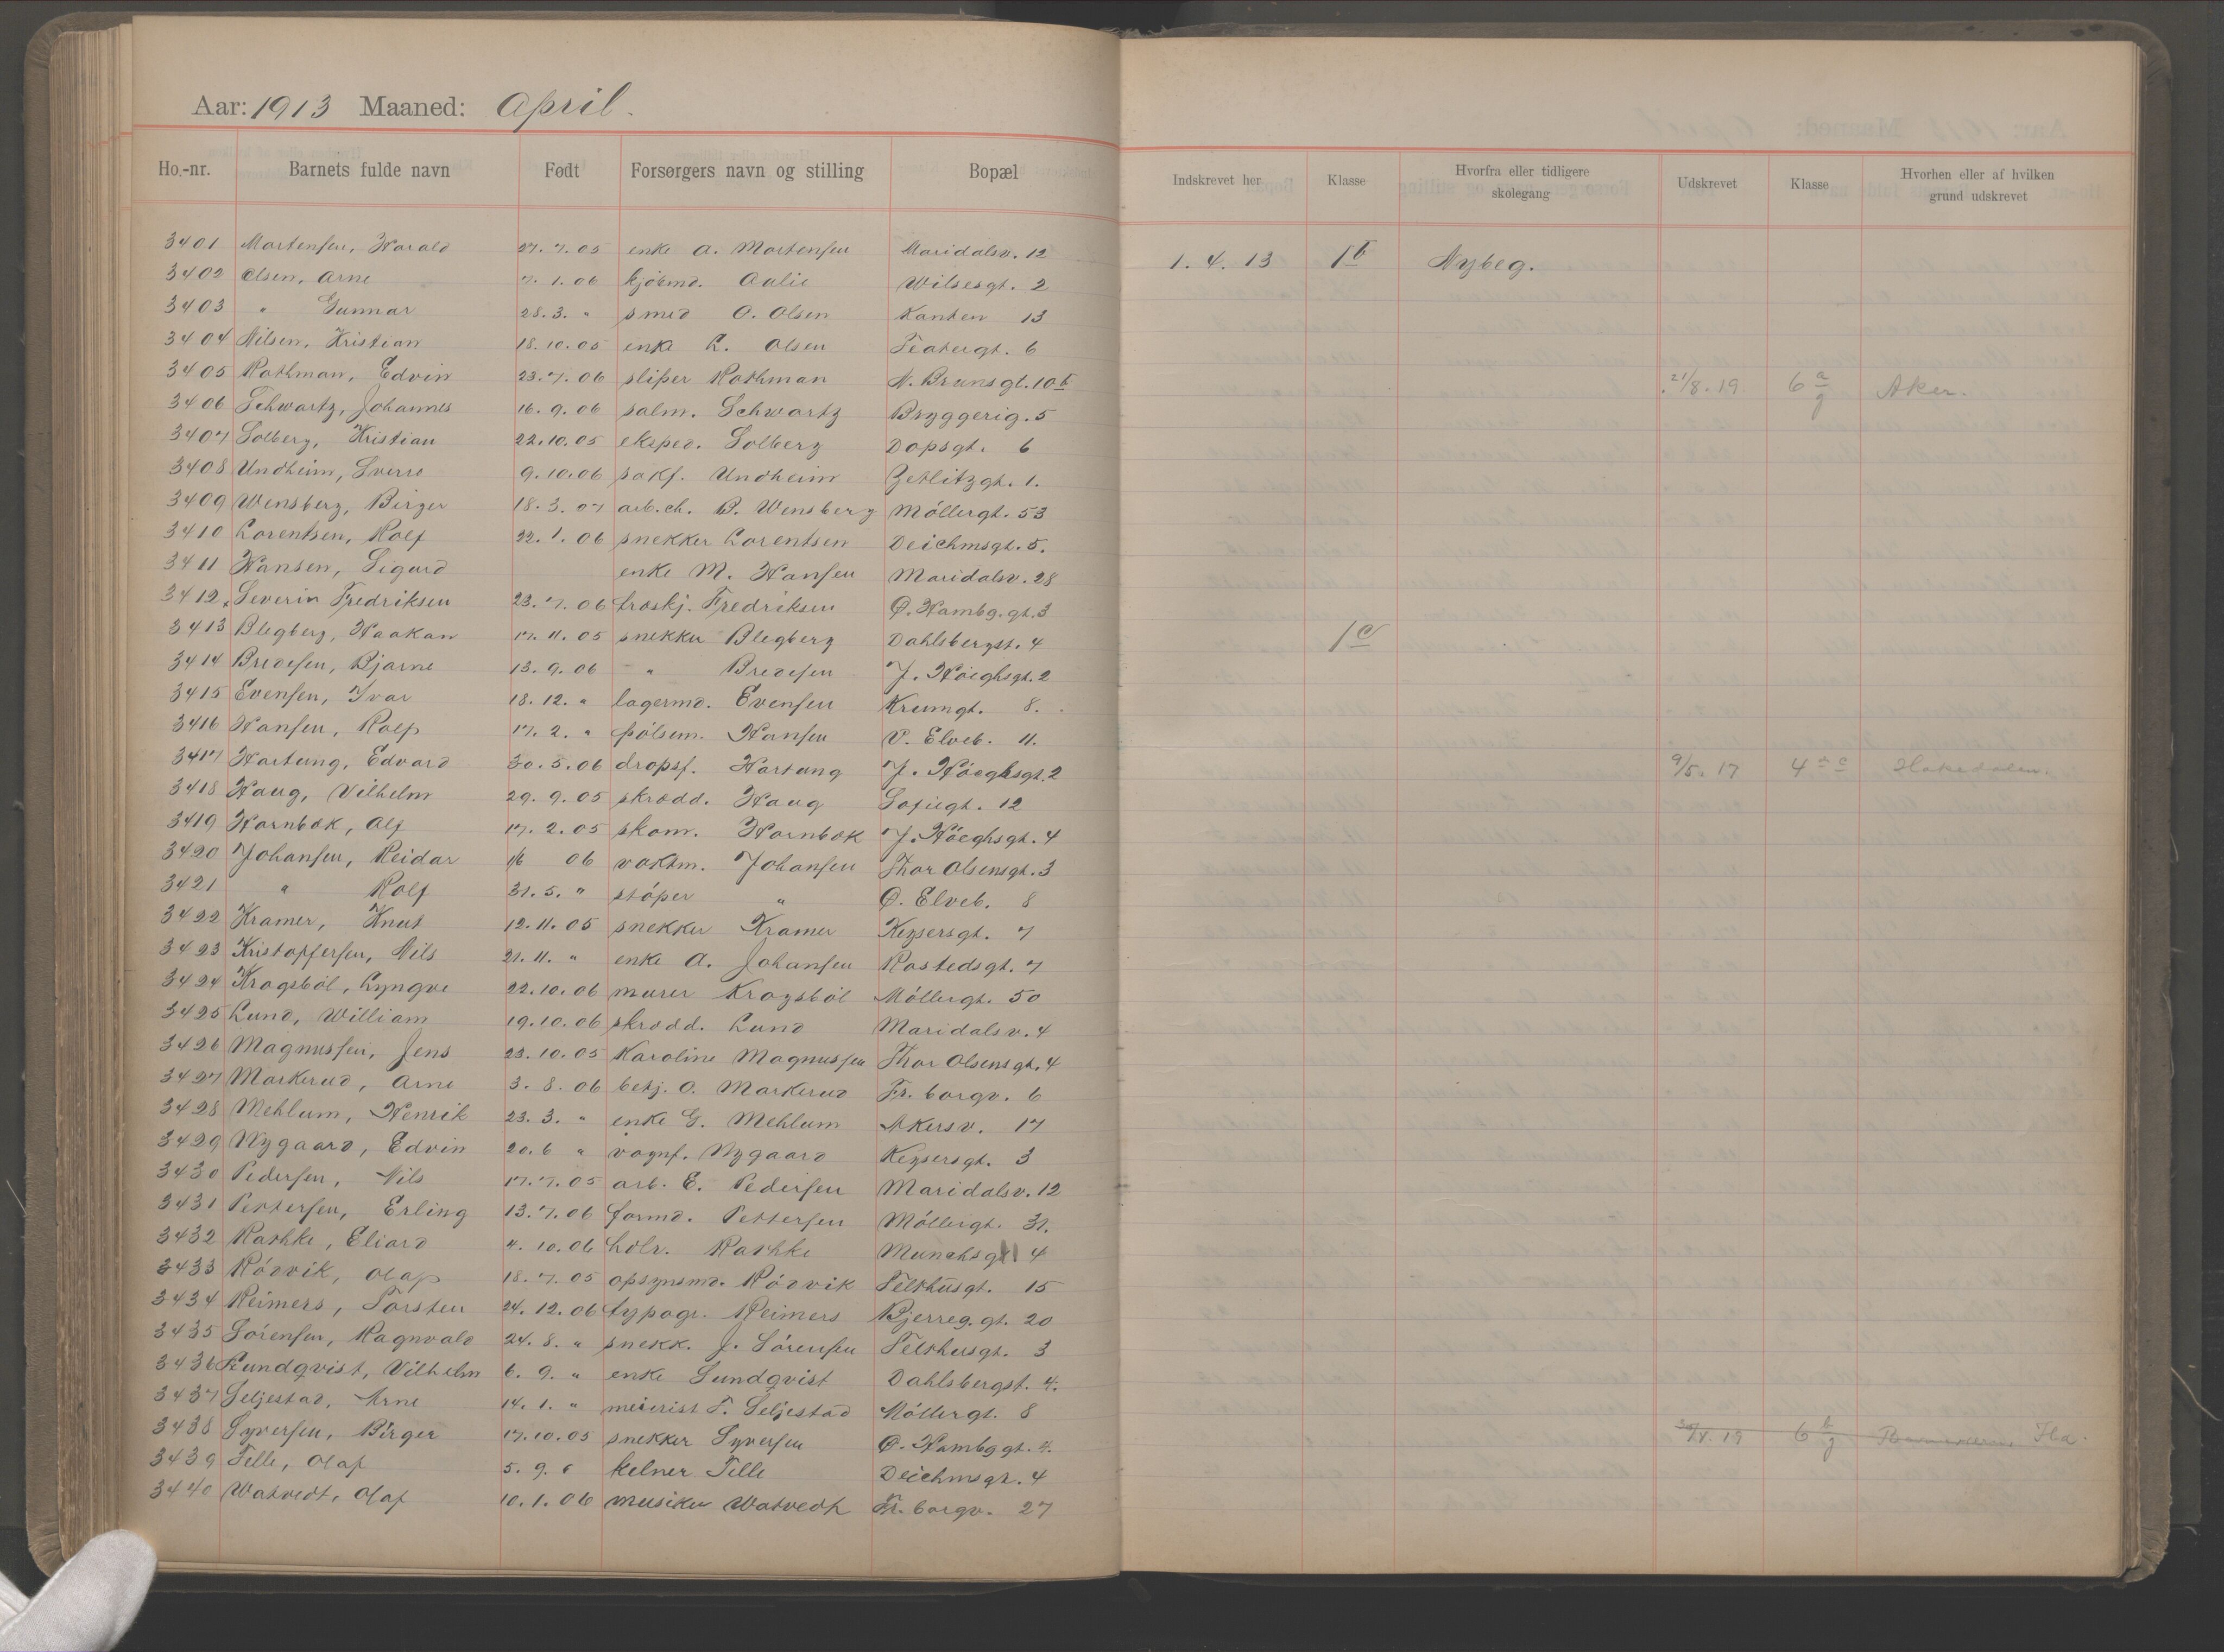 Aar: 1913 Maaned: April.
Ho.-nr. Barnets fulde navn Født Forsørgers navn og stilling Bopæl Indskrevet her Klasse Hvorfra eller tidligere skolegang Udskrevet Klasse Hvorhen eller af hvilken grund udskrevet
3401 Martensen, Harald 27.7.05 enke A. Martensen Maridalsv. 12 1.4.13 1 b Nybeg.
3402 Olsen, Arne 7.1.06 kjøbmd. Aalie Wilsesgt. 2
3403 " Gunnar 28.3. " smed O. Olsen Kanten 13
3404 Nilsen, Kristian 18.10.05 enke L. Olsen Teatergt. 6
3405 Rathman, Edvin 23.7.06 sliper Rathman N. Brunsgt. 10 b 21/8.19. 6 a/g Aker.
3406 Schwartz, Johannes 16.9.06 salm. Schwartz Bryggerig. 5
3407 Solberg, Kristian 22.10.05 eksped. Solberg Dopsgt. 6
3408 Undheim, Sverre 9.10.06 sakf. Undheim Zetlitzgt. 1.
3409 Wensberg, Birger 18.3.07 arb.ch. P. Wensberg Møllergt. 53
3410 Lorentsen, Rolf 22.1.06 snekker Lorentsen Deichmsgt. 5.
3411 Hansen, Sigurd enke M. Hansen Maridalsv. 28
3412 Severin Fredriksen 23.7.06 droskj. Fredriksen Ø. Hambg.gt. 3
3413 Blegberg, Haakan 17.11.05 snekker Blegberg Dahlsbergst. 4 1 c
3414 Bredesen, Bjarne 13.9.06 " Bredesen J. Höeghsgt. 2
3415 Evensen, Ivar 18.12. " lagermd. Evensen Krumgt. 8.
3416 Hansen, Rolf 17.2. " pölsem. Hansen V. Elveb. 11.
3417 Hartung, Edvard 30.5.06 dropsf. Hartung J. Höeghsgt. 2 9/5.17 4 a c Hakedalen.
3418 Haug, Vilhelm 29.9.05 skrædd. Haug Sofiegt. 12
3419 Hornbæk, Alf 17.2.05 skom. Hornbæk J. Höeghsgt. 4
3420 Johansen, Reidar 1/6 06 vaktm. Johansen Thor Olsensgt. 3
3421 " Rolf 31.5. " støper " Ø. Elveb. 8
3422 Kramer, Knut 12.11.05 snekker Kramer Keysersgt. 7
3423 Kristoffersen, Nils 21.11. " enke A. Johansen Rostedsgt. 7
3424 Kragsböl, Lyngve 22.10.06 murer Kragsböl Møllergt. 50
3425 Lund, William 19.10.06 skrædd. Lund Maridalsv. 4
3426 Magnussen, Jens 23.10.05 Karoline Magnussen Thor Olsensgt. 4
3427 Markerud, Arne 3.8.06 betj. O. Markerud Fr. borgv. 6
3428 Mehlum, Henrik 23.3. " enke G. Mehlum Akersv. 17
3429 Nygaard, Edvin 20.6 " vognf. Nygaard Keysersgt. 3
3430 Pedersen, Nils 17.7.05 arb. E. Pedersen Maridalsv. 12
3431 Pettersen, Erling 13.7.06 formd. Pettersen Møllergt. 31.
3432 Rathke, Eliard 4.10.06 hdlr. Rathke Munchsgt 4
3433 Rödvik, Olaf 18.7.05 opsynsmd. Rödvik Telthusgt. 15
3434 Reimers, Torsten 24.12.06 typogr. Reimers Bjerreg.gt. 20
3435 Sörensen, Ragnvald 24.8. " snekk. J. Sörensen Telthusgt. 3
3436 Sundqvist, Vilhelm 6.9. " enke Sundqvist Dahlsbergst. 4.
3437 Seljestad, Arne 14.1. " meierist T. Seljestad Møllergt. 8
3438 Syversen, Birger 17.10.05 snekker Syversen Ø. Hambggt. 4. 6 b/g Ila.
3439 Telle, Olaf 5.9. kelner Telle Deichmsgt. 4
3440 Watvedt, Olaf 10.1.06 musiker Watvedt Fr. borgv. 27